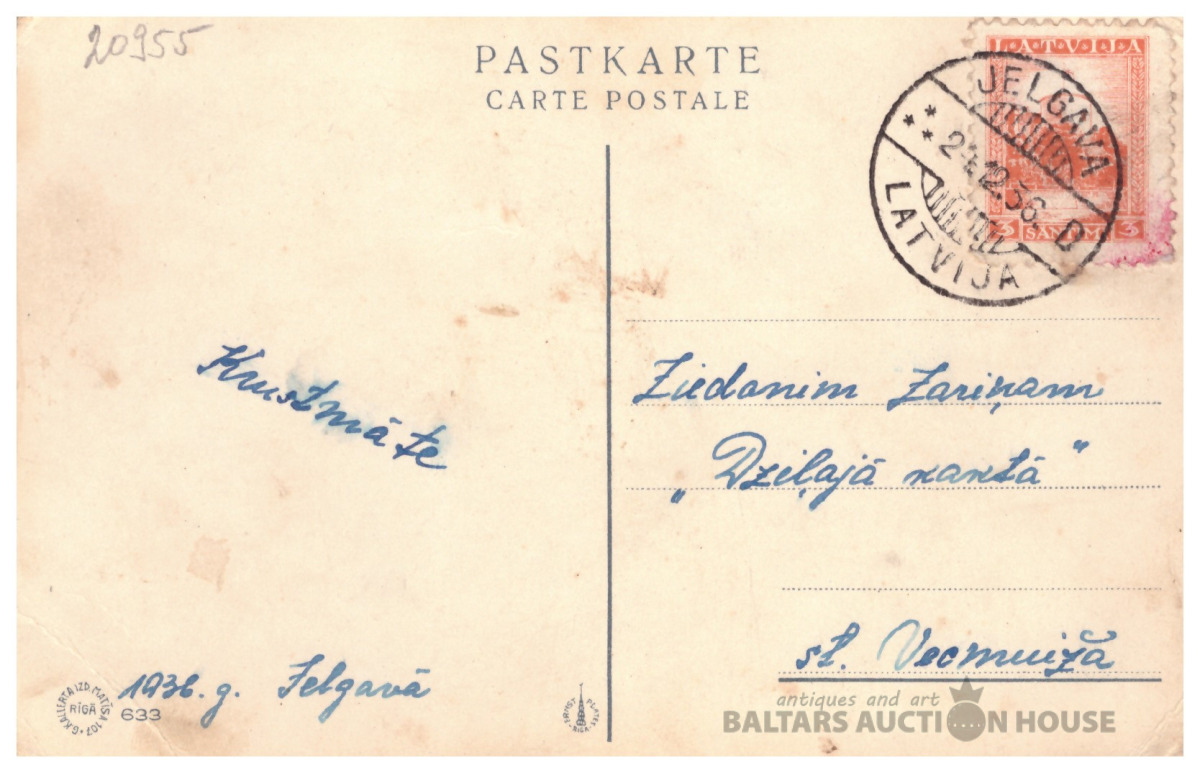 20955
PASTKARTE
CARTE POSTALE
LATVIJA
3 SANTIMI 3
JELGAVA
24.12.36. D
LATVIJA
Krustmāte
Ziedonim Zariņam
„Dziļajā naktā"
st. Vecmuiža
1936. g. Jelgavā
G.KALLERTA IZD. MATĪSA 107
RĪGĀ
633
antiques and art
BALTARS AUCTION HOUSE